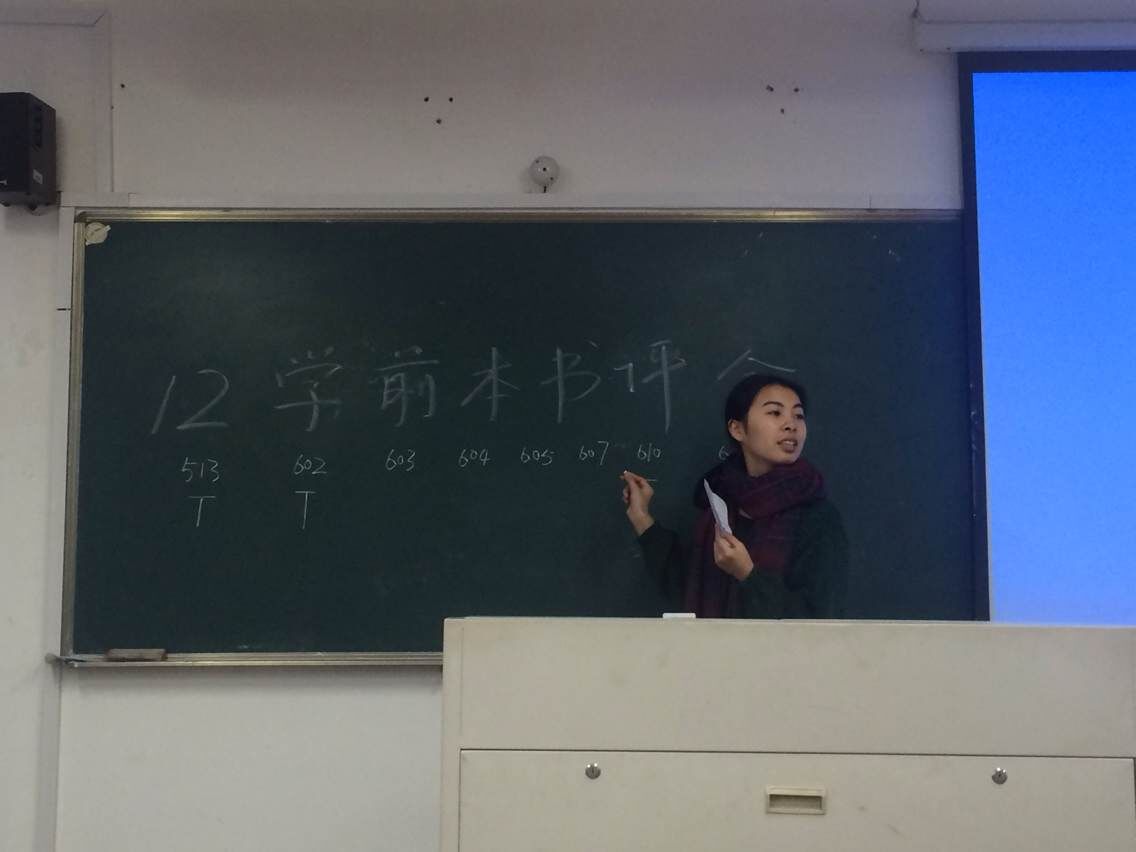 12 学前本书评会
513 602 603 604 605 607 610
T T